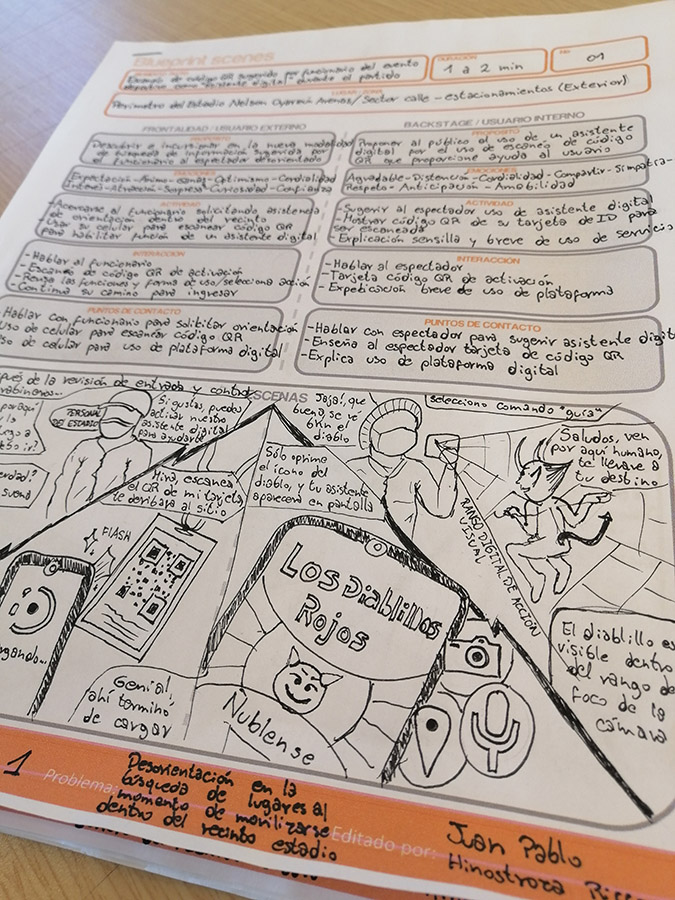 Blueprint scenes
Ejemplo de código QR sugerido por funcionario del evento
deportivo como asistente digital durante el partido
DURACIÓN
1 a 2 min
01
LUGAR / ZONA
Perímetro del Estadio Nelson Oyarzún Arenas/ Sector calle - estacionamientos (Exterior)
FRONTALIDAD / USUARIO EXTERNO
PROPÓSITO
Descubrir e incursionar en la nueva modalidad
de búsqueda de información sugerida por
el funcionario al espectador desorientado
EMOCIONES
Expectación - Animo - Ganas - Optimismo - Cordialidad
Interés - Atracción - Sorpresa - Curiosidad - Confianza
ACTIVIDAD
-Acercarse al funcionario solicitando asistencia
de orientación dentro del recinto
-Usar su celular para escanear código QR
para habilitar función de un asistente digital
INTERACCIÓN
-Hablar al funcionario
-Escaneo de código QR de activación
-Revisa las funciones y forma de uso/selecciona acción
-Continua su camino para ingresar
PUNTOS DE CONTACTO
-Hablar con funcionario para solititar orientación
uso de celular para escanear código QR
uso de celular para uso de plataforma digital
BACKSTAGE / USUARIO INTERNO
PROPÓSITO
Proponer al público el uso de un asistente
digital por el uso de escaneo de código
QR que proporcione ayuda al usuario
EMOCIONES
Agradable - Distención - Cordialidad - Compartir - Simpatía -
Respeto - Anticipación - Amobilidad
ACTIVIDAD
-Sugerir al espectador uso de asistente digital
-Mostrar código QR de su tarjeta de ID para
ser escaneada
-Explicación sensilla y breve de uso de servicio
INTERACCIÓN
-Hablar al espectador
-Tarjeta código QR de activación
-Expeticación breve de uso de plataforma
PUNTOS DE CONTACTO
-Hablar con espectador para sugerir asistente digit
-Enseña al espectador tarjeta de código QR
-Explica uso de plataforma digital
ESCENAS
pués de la revisión de entrada y control
rabineros...
PERSONAL
DEL ESTADIO
Si gustas, puedes
activar nuestro
asistente digital
para ayudarte
Mira, escanea
el QR de mi tarjeta,
te derivara al sitio
FLASH
gando...
Genial,
ahí termino
de cargar
Sólo oprime
el ícono del
diablo, y tu asistente
aparecera en pantalla
Los Diablillos
Rojos
Ñublense
Jaja!, que
bueno, se ve
bkn el
diablo
selecciono comando "guía"
Saludos, ven
por aquí humano,
te llevare a
tu destino
RANGO DIGITAL DE ACCIÓN
VISUAL
El diablillo es
visible dentro
del rango de
foco de la
cámara
1
Problema:
Desorientación en la
búsqueda de lugares al
momento de movilizarse
dentro del recinto estadio
Editado por:
Juan Pablo
Hinostroza